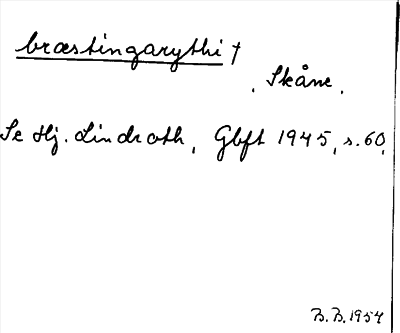 bræstingarythi †
, Skåne.
Se Hj. Lindroth, Gbft 1945, s. 60.
B.B. 1954